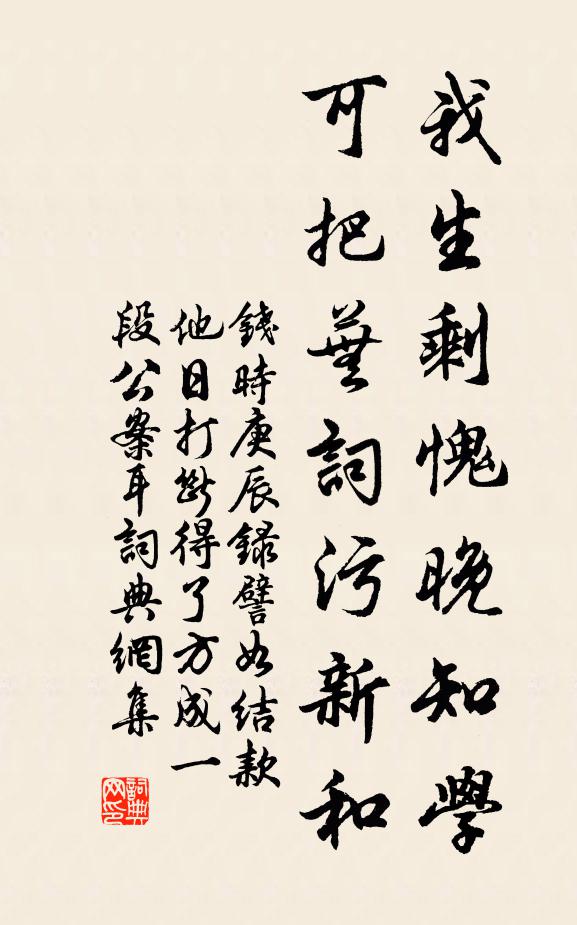 我生剩愧晚知學
可把蕪詞污新和
錢時庚辰録譬如结款
他日打斷得了方成一
段公案耳詞典網集
詞典网印